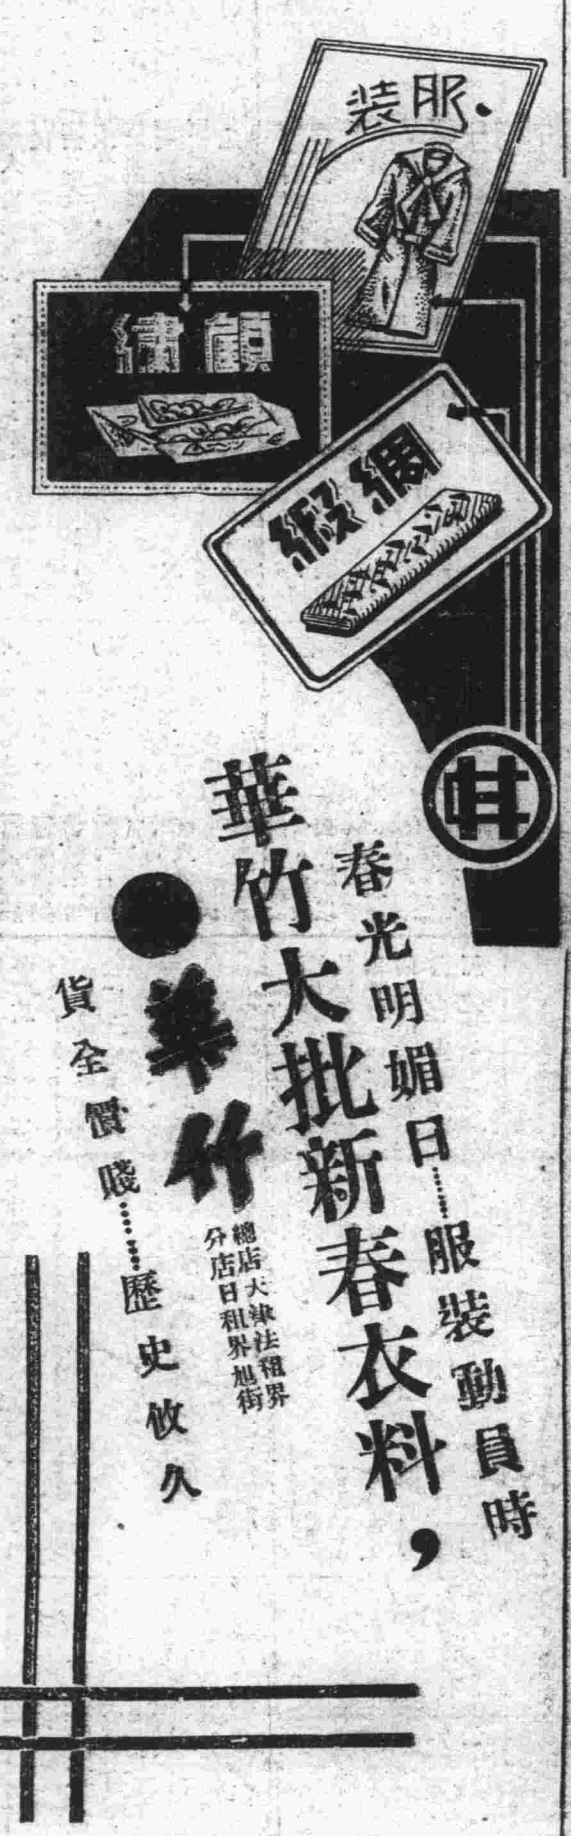 服装
顧繡
綢緞
春光明媚日……服裝動員時
華竹大批新春衣料，
華竹
總店天津法租界
分店日租界旭街
貨全價賤……歷史攸久